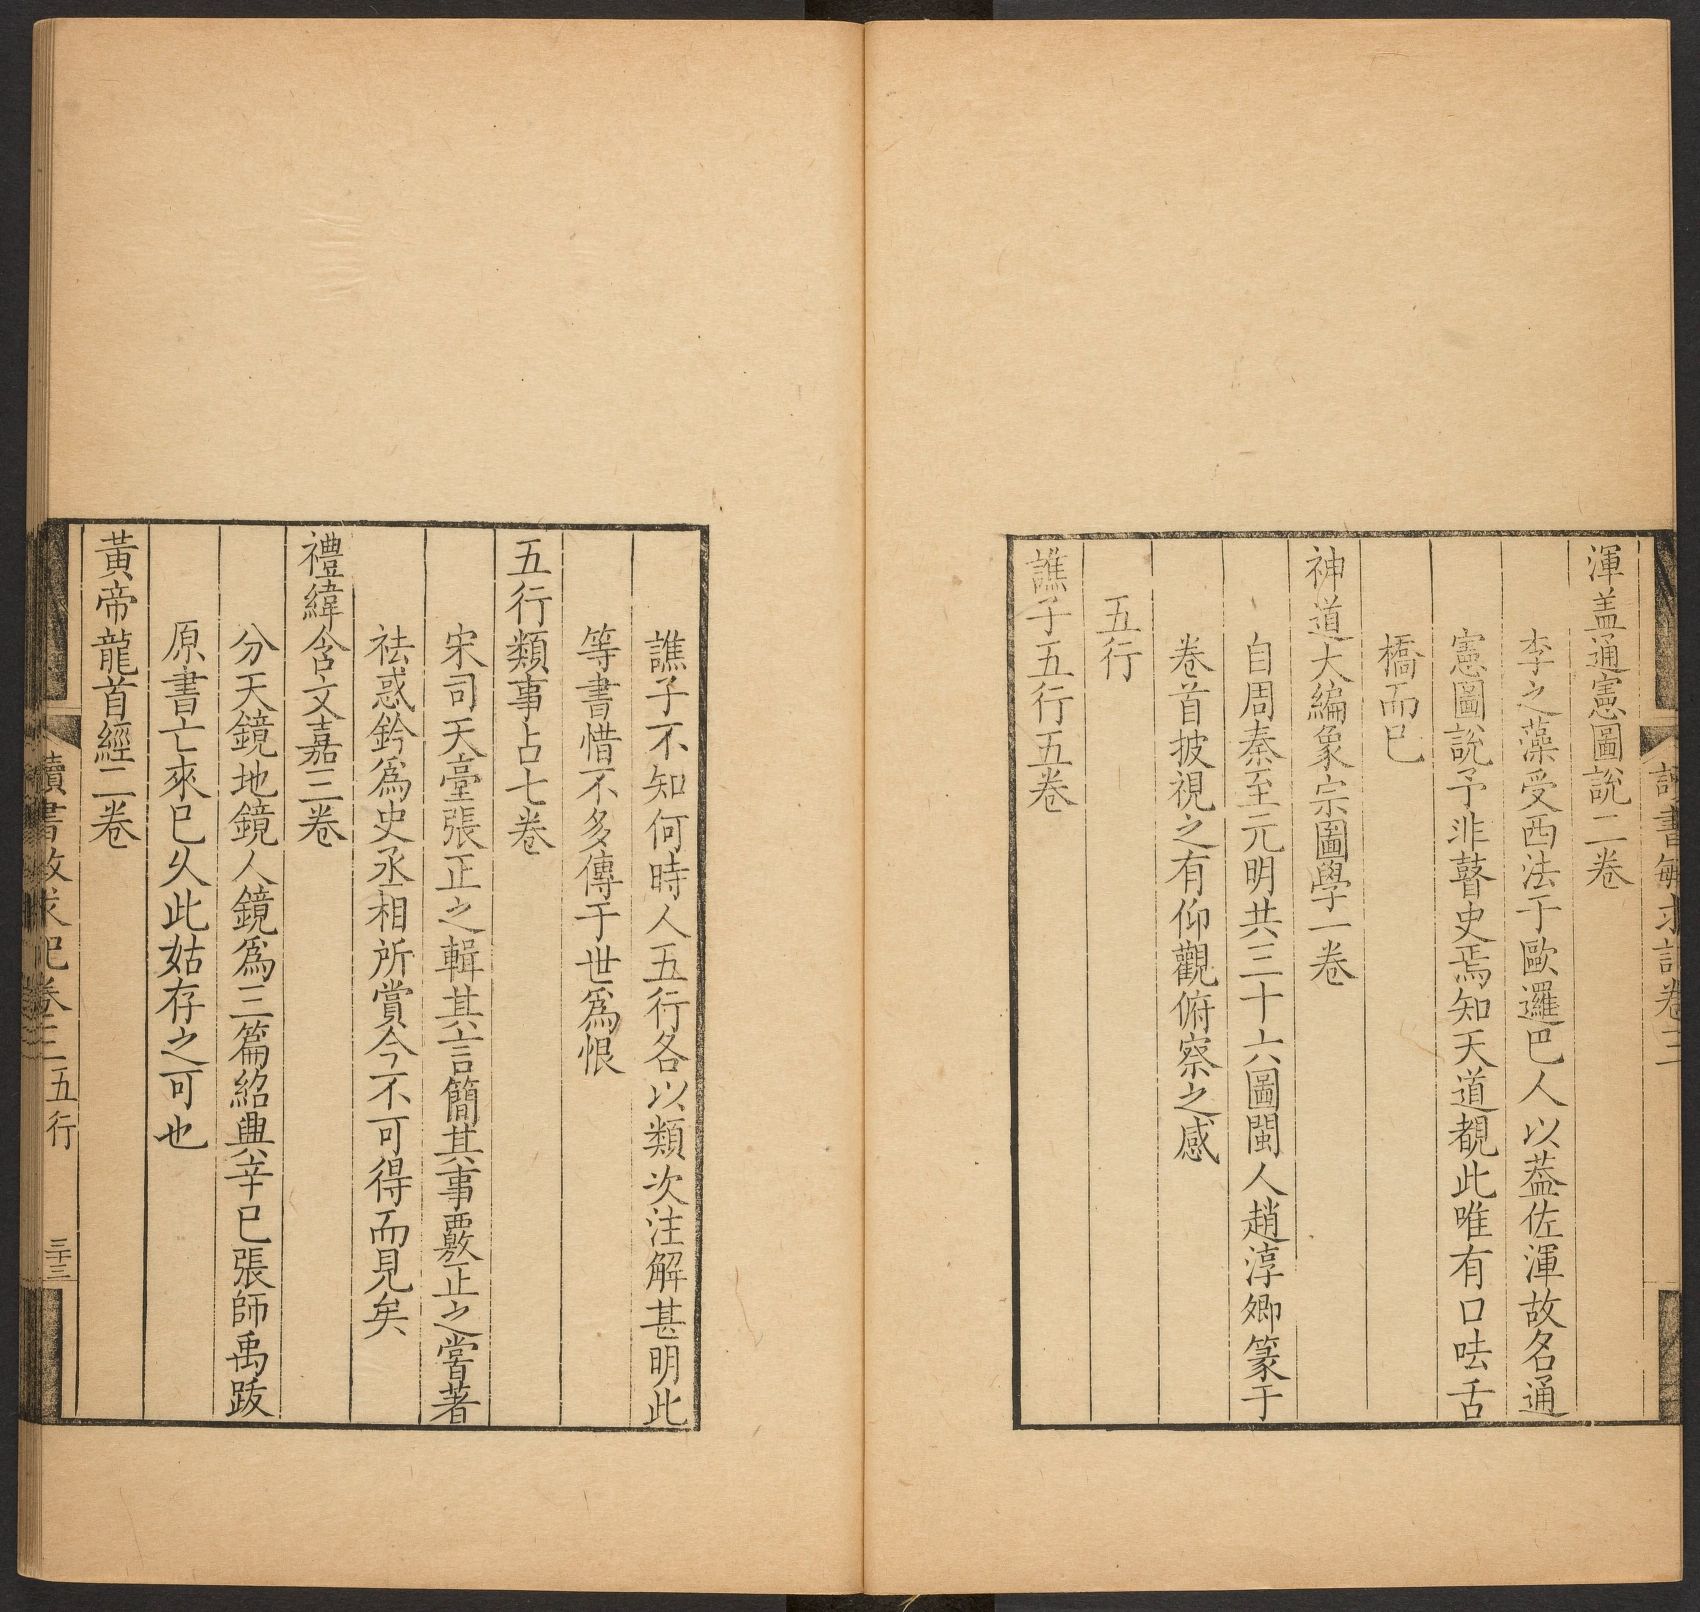 渾盖通憲圖說二卷
李之藻受西法于歐邏巴人以葢佐渾故名通
憲圖說予非瞽史焉知天道覩此唯有口呿舌
橋而巳
神道大編象宗圖學一卷
自周秦至元明共三十六圖閩人趙淳卿篆于
卷首披視之有仰觀俯察之感
五行
譙子五行五卷
譙子不知何時人五行各以類次注解甚明此
等書惜不多傳于世爲恨
五行類事占七卷
宋司天臺張正之輯其言簡其事覈正之嘗著
祛惑鈐爲史丞相所賞今不可得而見矣
禮緯含文嘉三卷
分天鏡地鏡人鏡爲三篇紹興辛巳張師禹跋
原書亡來巳久此姑存之可也
黃帝龍首經二卷
讀書敏求記卷三 五行 三十三